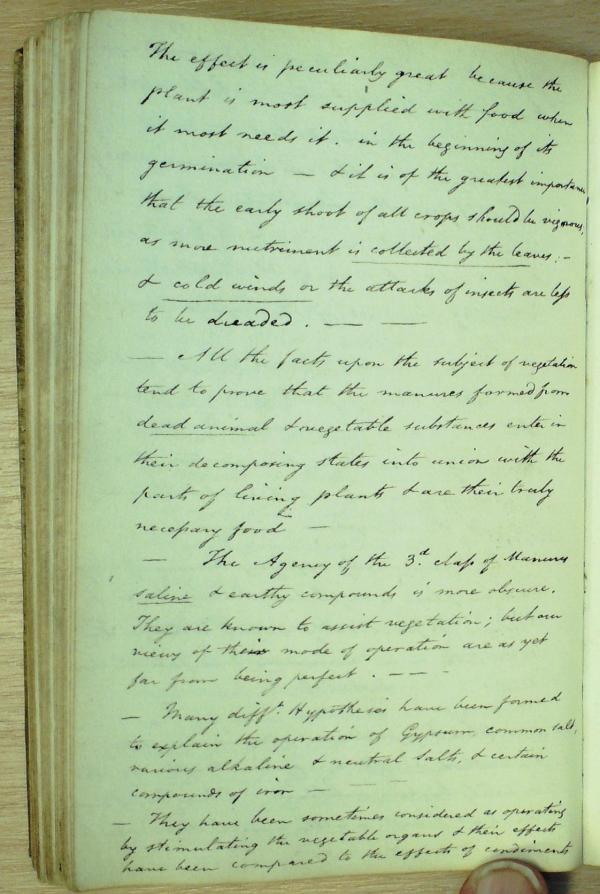 The effect is peculiarly great because the
plant is most supplied with food when
it most needs it. in the beginning of its
germination — & it is of the greatest importance
that the early shoot of all crops should be vigorous,
as more nutriment is collected by the leaves; –
& cold winds or the attacks of insects are less
to be dreaded. — —
— All the facts upon the subject of vegetation
tend to prove that the manures formed from
dead animal & vegetable substances enter in
their decomposing states into union with the
parts of living plants & are their truly
necessary food —
— The Agency of the 3.d class of Manures
saline & earthy compounds is more obscure.
They are known to assist vegetation; but our
views of their mode of operation are as yet
far from being perfect. — — -
— Many diff.t Hypotheses have been formed
to explain the operation of Gypsum, common salt,
various alkaline & neutral Salts, & certain
compounds of iron — — —
— They have been sometimes considered as operating
by stimulating the vegetable organs & their effects
have been compared to the effects of condiments